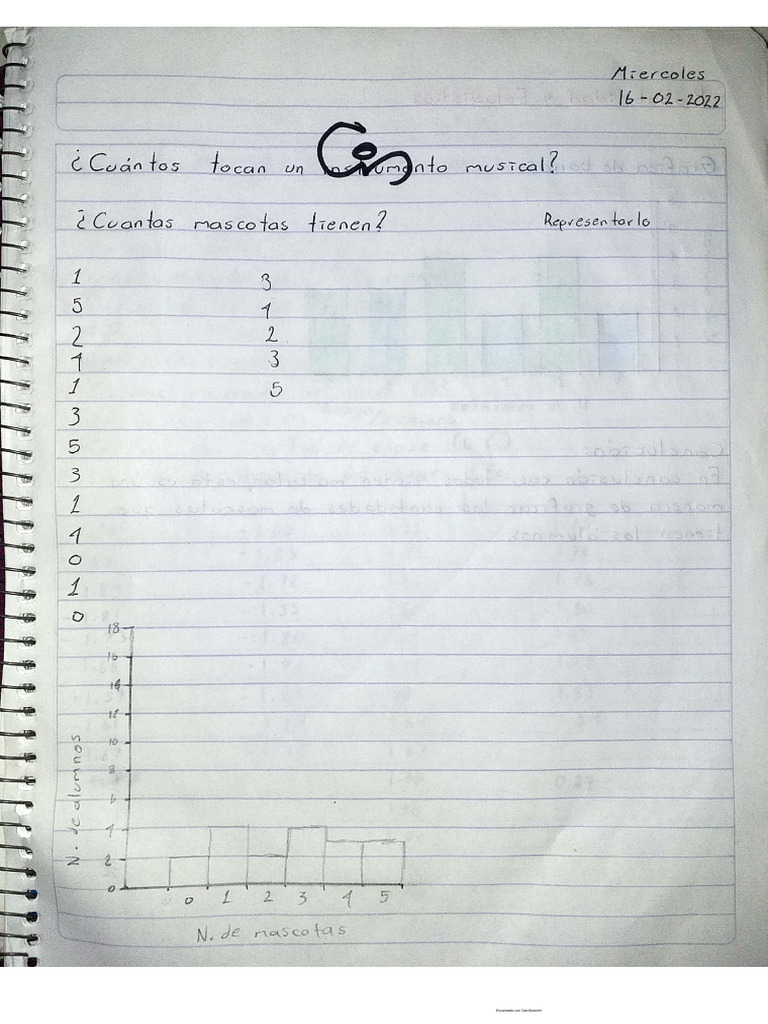 Miercoles
16-02-2022
¿Cuántos tocan un instrumento musical?
¿Cuantas mascotas tienen? Representarlo
1 3
5 4
2 2
4 3
1 5
3
5
3
1
4
0
1
0
18
16
14
12
10
8
6
4
2
0
N. de alumnos
0 1 2 3 4 5
N. de mascotas
Escaneado con CamScanner